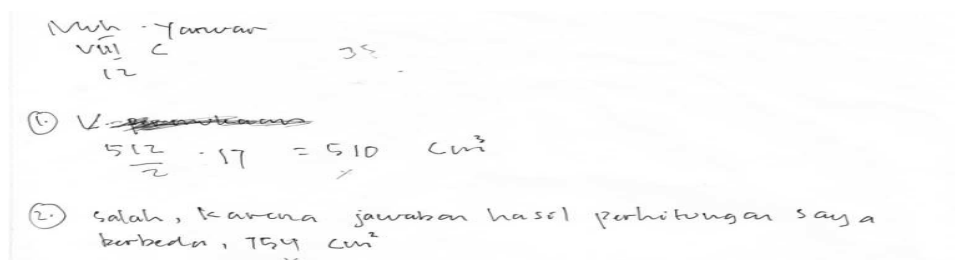 Muh. Yanwar
VIII C
12
35
1. V =
512/2 . 17 = 510 cm³
2. salah, karena jawaban hasil perhitungan saya
berbeda, 754 cm²